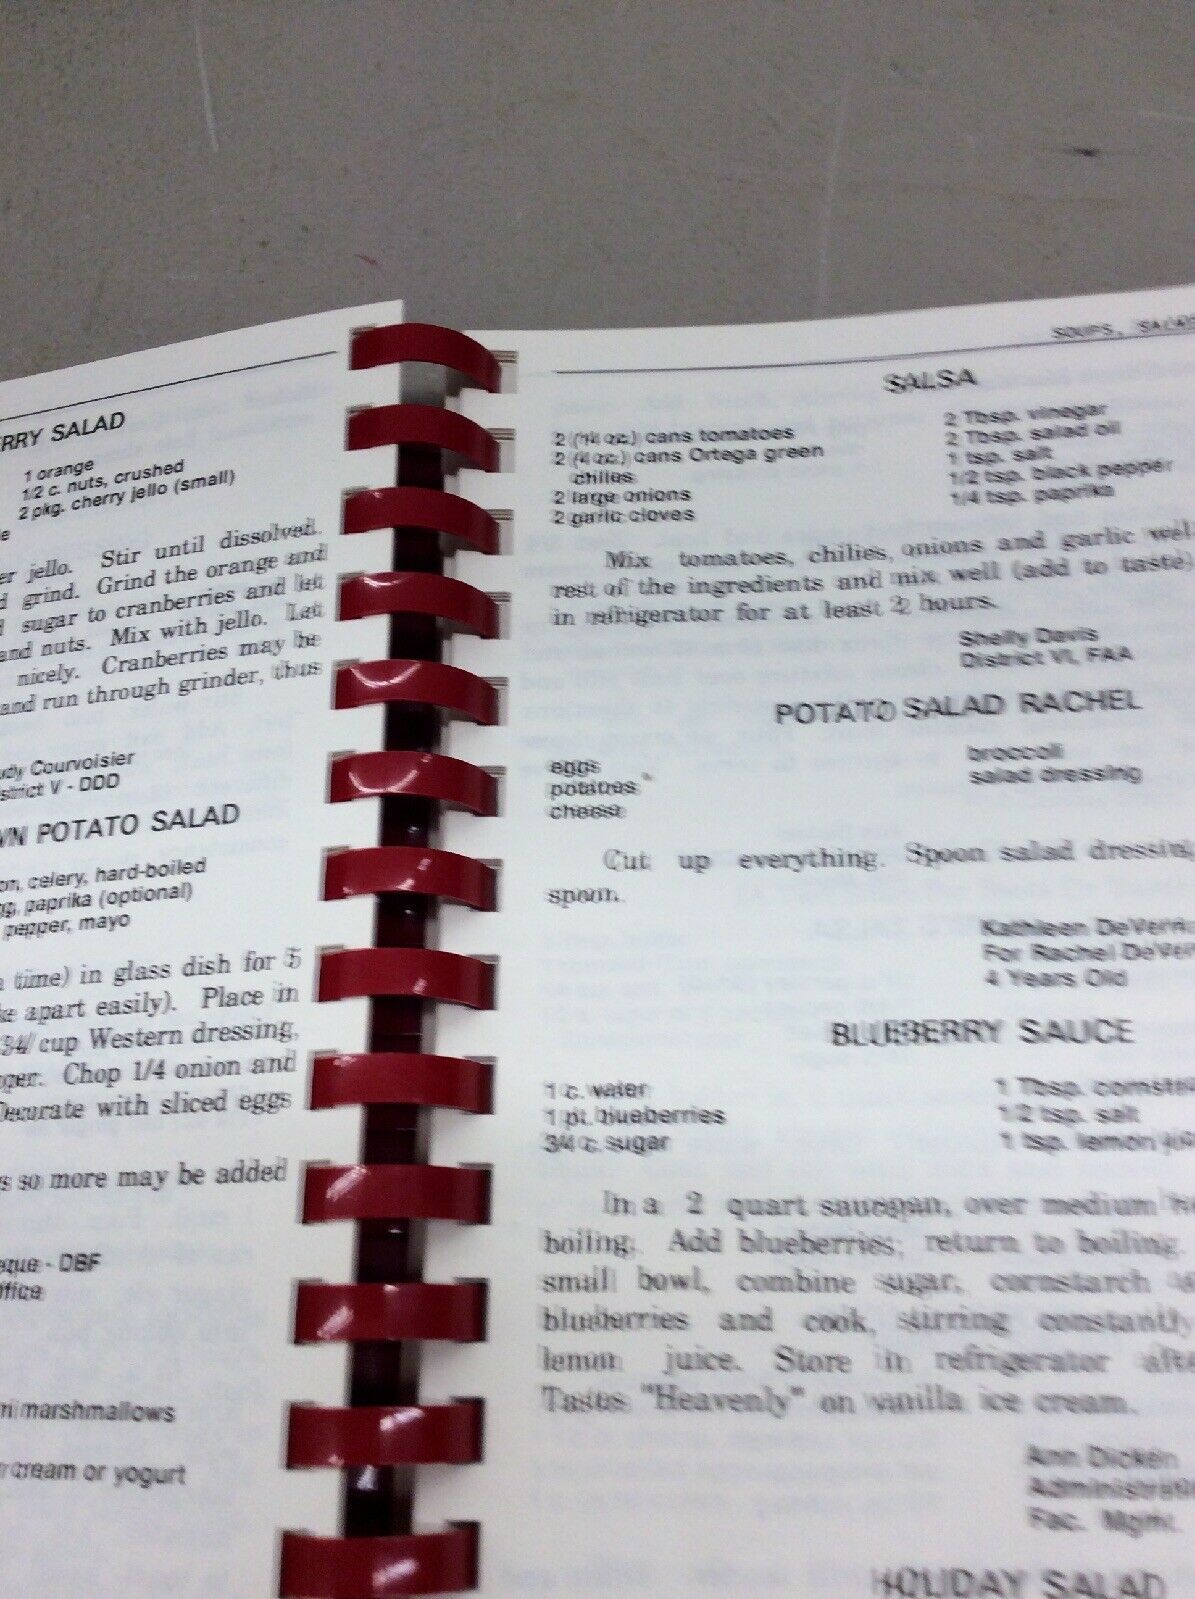 RRY SALAD
1 orange
1/2 c. nuts, crushed
2 pkg. cherry jello (small)
er jello. Stir until dissolved.
d grind. Grind the orange and
d sugar to cranberries and let
and nuts. Mix with jello. Let
nicely. Cranberries may be
and run through grinder, thus
udy Courvoisier
strict V - DDD
WN POTATO SALAD
on, celery, hard-boiled
gg, paprika (optional)
pepper, mayo
a time) in glass dish for 5
ke apart easily). Place in
3/4 cup Western dressing,
pper. Chop 1/4 onion and
Decorate with sliced eggs
s so more may be added
eque - DBF
ffice
ni marshmallows
r cream or yogurt
SOUPS, SALADS
SALSA
2 (14 oz.) cans tomatoes
2 (4 oz.) cans Ortega green
chilies
2 large onions
2 garlic cloves
2 Tbsp. vinegar
2 Tbsp. salad oil
1 tsp. salt
1/2 tsp. black pepper
1/4 tsp. paprika
Mix tomatoes, chilies, onions and garlic well
rest of the ingredients and mix well (add to taste)
in refrigerator for at least 2 hours.
Shelly Davis
District VI, FAA
POTATO SALAD RACHEL
eggs
potatoes
cheese
broccoli
salad dressing
Cut up everything. Spoon salad dressing
spoon.
Kathleen DeVern
For Rachel DeVer
4 Years Old
BLUEBERRY SAUCE
1 c. water
1 pt. blueberries
3/4 c. sugar
1 Tbsp. cornsta
1/2 tsp. salt
1 tsp. lemon jui
In a 2 quart saucepan, over medium he
boiling. Add blueberries; return to boiling.
small bowl, combine sugar, cornstarch a
blueberries and cook, stirring constantly
lemon juice. Store in refrigerator afte
Tastes "Heavenly" on vanilla ice cream.
Ann Dicken
Administrati
Fac. Mgmt.
HOLIDAY SALAD